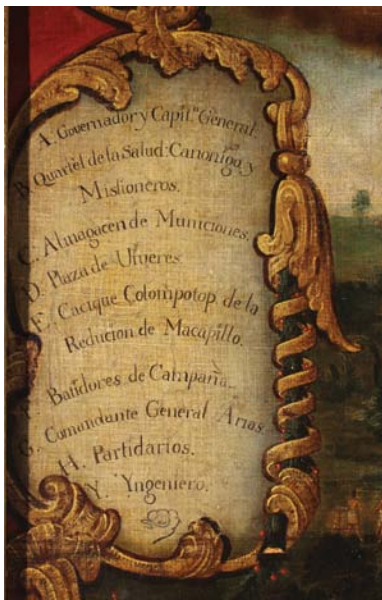 A. Governador y Capit.ⁿ General.
B. Quartel de la Salud: Canonigo, y
Misioneros.
C. Almagacen de Municiones.
D. Plaza de Viveres
E. Cacique Colompotop de la
Reducion de Macapillo.
F. Batidores de Campaña.
G. Comandante General Arias.
H. Partidarios.
Y. Yngeniero.